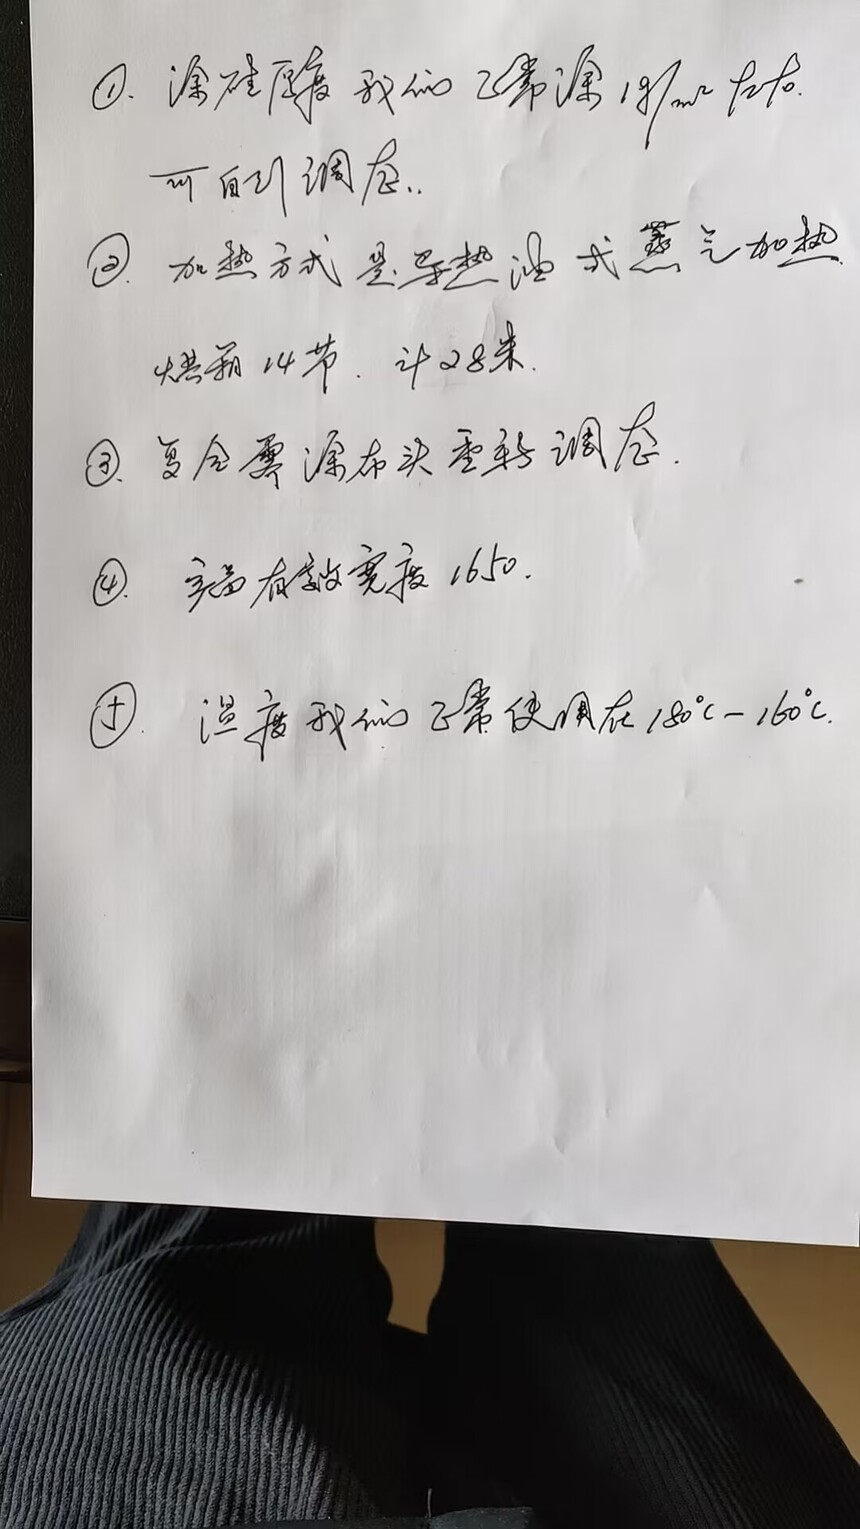 ①. 涂硅厚度我们正常涂1g/m² 左右.
可自引调态..
②. 加热方式是导热油或蒸气加热.
烘箱14节. 计28米.
③. 复合需涂布头重新调态.
④. 实际有效宽度1650.
⑤. 温度我们正常使用在180℃-160℃.